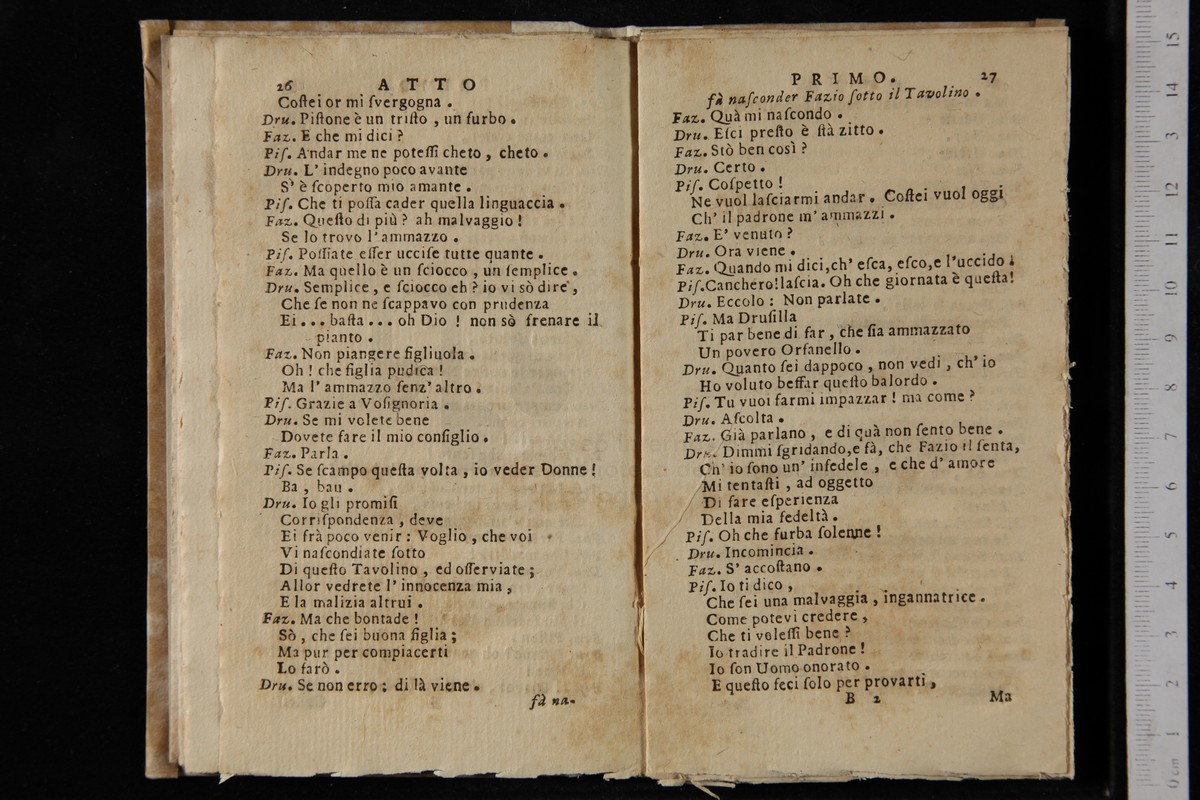 26 ATTO
Coſtei or mi ſvergogna .
Dru. Piſtone è un triſto , un furbo .
Faz. E che mi dici ?
Piſ. Andar me ne poteſſi cheto , cheto .
Dru. L' indegno poco avante
S' è ſcoperto mio amante .
Piſ. Che ti poſſa cader quella linguaccia .
Faz. Queſto di più ? ah malvaggio !
Se lo trovo l' ammazzo .
Piſ. Poſſiate eſſer ucciſe tutte quante .
Faz. Ma quello è un ſciocco , un ſemplice .
Dru. Semplice , e ſciocco eh ? io vi sò dire ,
Che ſe non ne ſcappavo con prudenza
Ei ... baſta ... oh Dio ! non sò frenare il
pianto .
Faz. Non piangere figliuola .
Oh ! che figlia pudica !
Ma l' ammazzo ſenz' altro .
Piſ. Grazie a Voſignoria .
Dru. Se mi volete bene
Dovete fare il mio conſiglio .
Faz. Parla .
Piſ. Se ſcampo queſta volta , io veder Donne !
Ba , bau .
Dru. Io gli promiſi
Corriſpondenza , deve
Ei frà poco venir : Voglio , che voi
Vi naſcondiate ſotto
Di queſto Tavolino , ed oſſerviate ;
Allor vedrete l' innocenza mia ,
E la malizia altrui .
Faz. Ma che bontade !
Sò , che ſei buona figlia ;
Ma pur per compiacerti
Lo farò .
Dru. Se non erro : di là viene .
fà na-
PRIMO. 27
fà naſconder Fazio ſotto il Tavolino .
Faz. Quà mi naſcondo .
Dru. Eſci preſto è ſtà zitto .
Faz. Stò ben così ?
Dru. Certo .
Piſ. Coſpetto !
Ne vuol laſciarmi andar . Coſtei vuol oggi
Ch' il padrone m' ammazzi .
Faz. E' venuto ?
Dru. Ora viene .
Faz. Quando mi dici,ch' eſca, eſco,e l'uccido .
Piſ.Canchero!laſcia. Oh che giornata è queſta!
Dru. Eccolo : Non parlate .
Piſ. Ma Druſilla
Ti par bene di far , che ſia ammazzato
Un povero Orfanello .
Dru. Quanto ſei dappoco , non vedi , ch' io
Ho voluto beffar queſto balordo .
Piſ. Tu vuoi farmi impazzar ! ma come ?
Dru. Aſcolta .
Faz. Già parlano , e di quà non ſento bene .
Dru. Dimmi ſgridando,e fà, che Fazio il ſenta,
Ch' io ſono un' infedele , e che d' amore
Mi tentaſti , ad oggetto
Di fare eſperienza
Della mia fedeltà .
Piſ. Oh che furba ſolenne !
Dru. Incomincia .
Faz. S' accoſtano .
Piſ. Io ti dico ,
Che ſei una malvaggia , ingannatrice .
Come potevi credere ,
Che ti voleſſi bene ?
Io tradire il Padrone !
Io ſon Uomo onorato .
E queſto feci ſolo per provarti ,
B 2 Ma